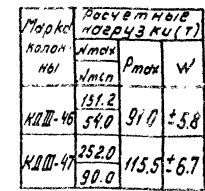 Марка колонны
Расчетные нагрузки (т)
Nmax
Nmin
Pmax
W
КДIII-46
151.2
54.0
91.0
±5.8
КДIII-47
252.0
90.0
115.5
±6.7